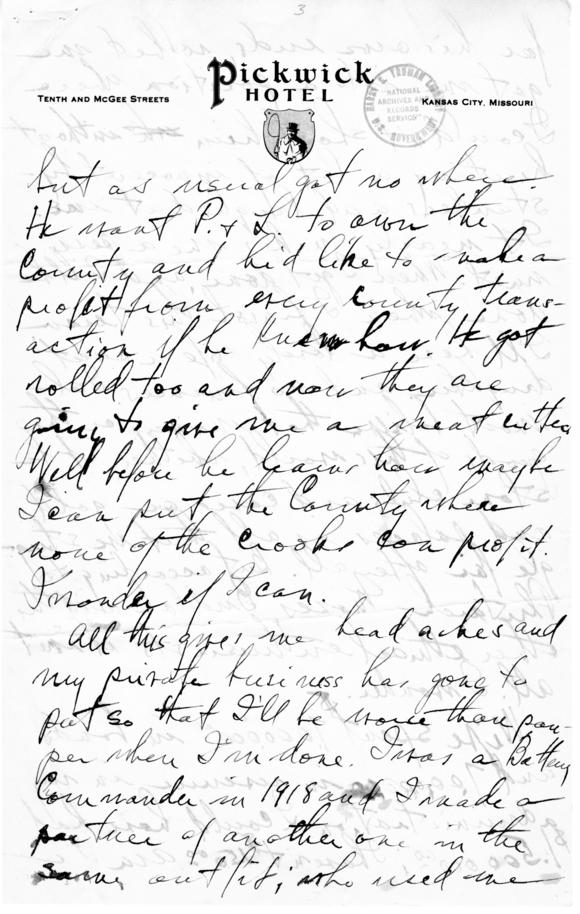 3
Pickwick
HOTEL
TENTH AND MCGEE STREETS
KANSAS CITY, MISSOURI
HARRY S. TRUMAN LIBRARY
"NATIONAL
ARCHIVES AND
RECORDS
SERVICE"
U.S. GOVERNMENT
but as usual got no where.
He want P. & L. to own the
County and he'd like to make a
profit from every county trans-
action if he knew how. He got
rolled too and now they are
going to give me a meat cutter
Well before he learns how maybe
I can put the County where
none of the crooks can profit.
I wonder if I can.
All this gives me head aches and
my private business has gone to
pot so that I'll be worse than pau-
per when I'm done. I was a Battery
Commander in 1918 and I made a
partner of another one in the
same outfit; who used me